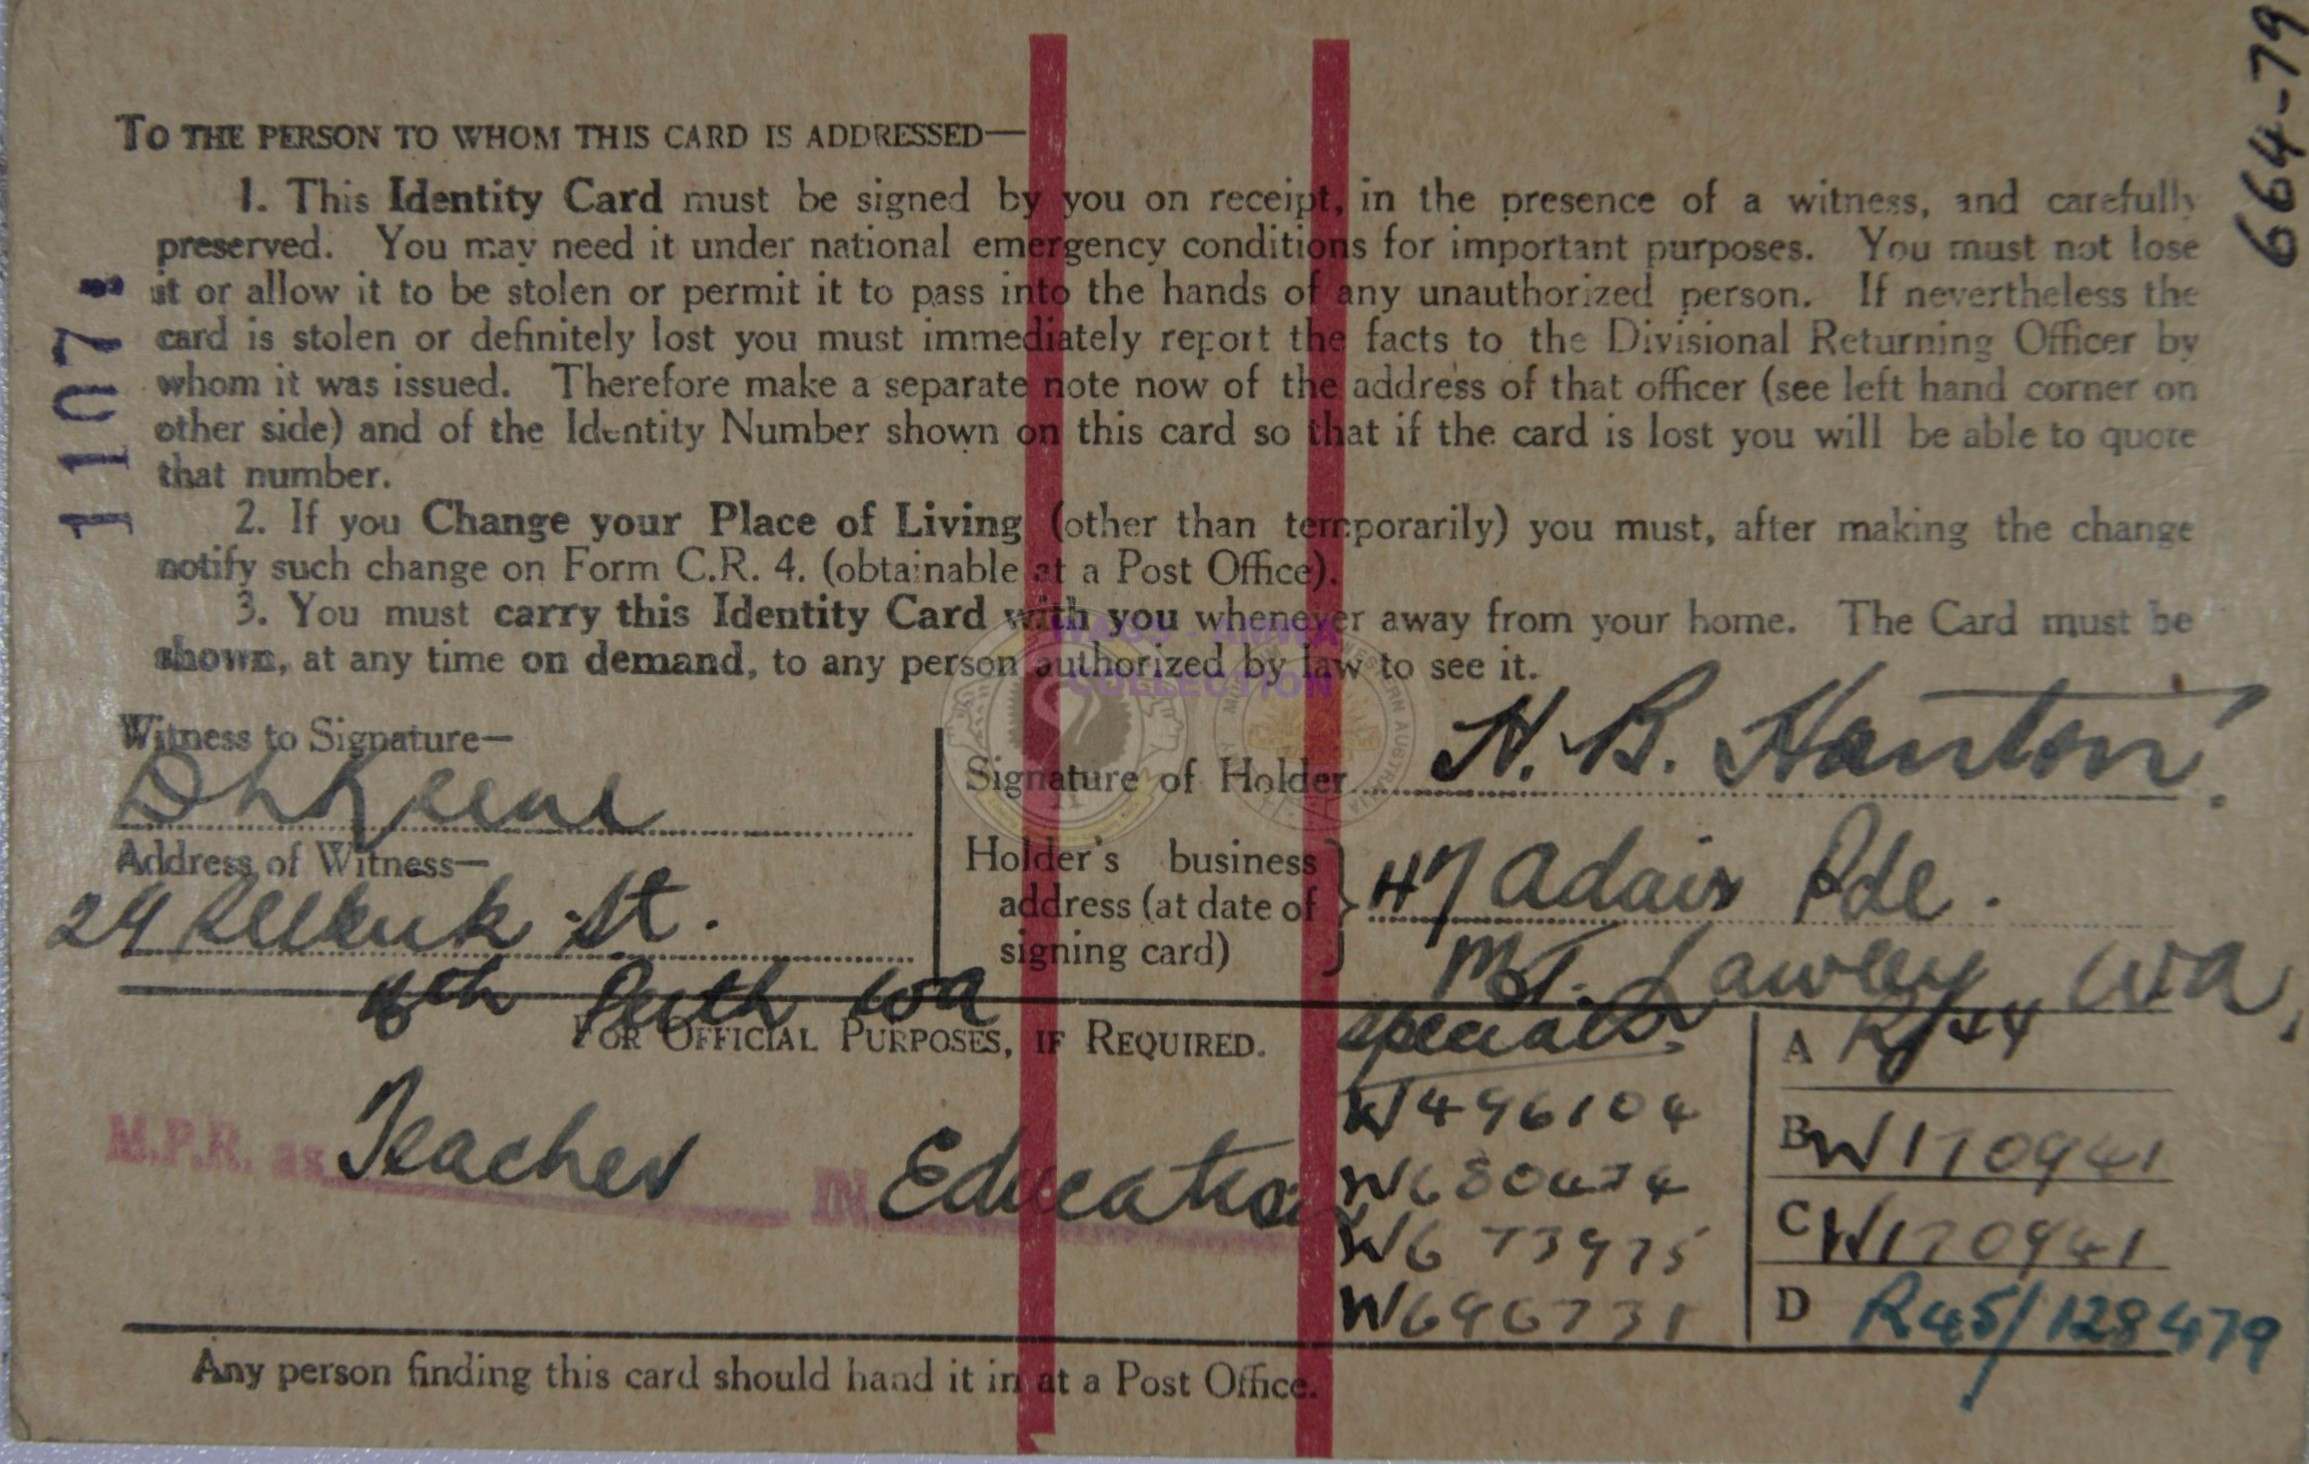 664-79
1107.
TO THE PERSON TO WHOM THIS CARD IS ADDRESSED—
1. This Identity Card must be signed by you on receipt, in the presence of a witness, and carefully
preserved. You may need it under national emergency conditions for important purposes. You must not lose
it or allow it to be stolen or permit it to pass into the hands of any unauthorized person. If nevertheless the
card is stolen or definitely lost you must immediately report the facts to the Divisional Returning Officer by
whom it was issued. Therefore make a separate note now of the address of that officer (see left hand corner on
other side) and of the Identity Number shown on this card so that if the card is lost you will be able to quote
that number.
2. If you Change your Place of Living (other than temporarily) you must, after making the change
notify such change on Form C.R. 4. (obtainable at a Post Office).
3. You must carry this Identity Card with you whenever away from your home. The Card must be
shown, at any time on demand, to any person authorized by law to see it.
COLLECTION
Witness to Signature—
Address of Witness—
24 St.
Perth WA
Signature of Holder H. B. Hanton.
Holder's business
address (at date of
signing card)
47 Adair Pde.
Mt. Lawley WA.
FOR OFFICIAL PURPOSES, IF REQUIRED.
M.P.R. as Teacher IN Education
Specials
W496104
W680474
W673975
W696731
A
B W170941
C W170941
D R45/128479
Any person finding this card should hand it in at a Post Office.